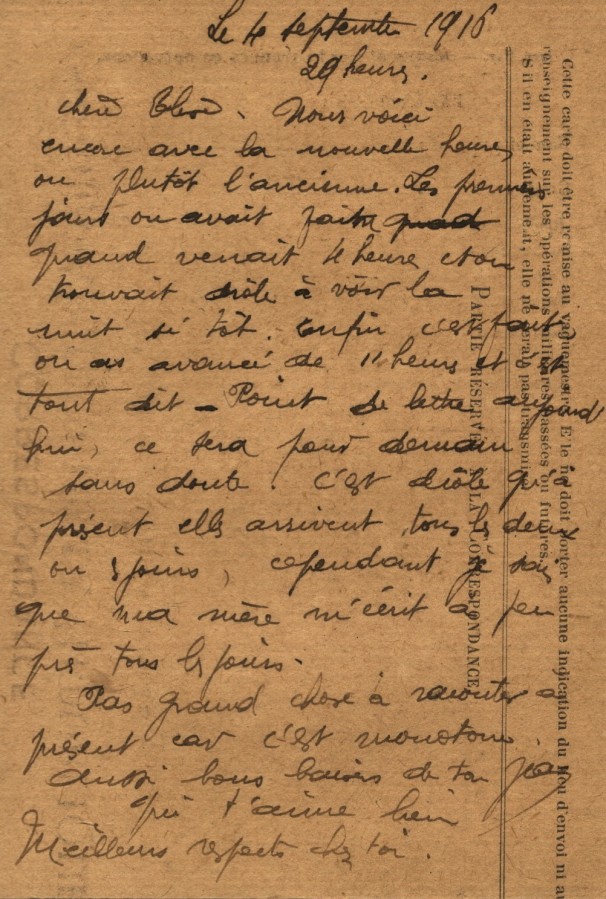 Le 4 septembre 1916
20 heures.
chere . Nous voici
encore avec la nouvelle heure,
ou plutôt l'ancienne. Les premiers
jours on avait
quand venait 4 heure et on
trouvait drôle à voir la
nuit si tôt. Enfin c'est fait,
on as avancé de 11 heures et c'est
tout dit – Point de lettre aujourd'
hui, ce sera pour demain
sans doute. C'est drôle qu'à
présent elle arrivent tous les deux
ou 3 jours, cependant je sais
que ma mère m'écrit à peu
près tous les jours.
Pas grand chose à raconter à
présent car c'est monotone.
Aussi bons baisers de ton
qui t'aime bien
Meilleurs respects chez toi.
Cette carte doit être remise au vaguemestre. Elle ne doit porter aucune indication du lieu d'envoi ni
renseignement sur les opérations militaires passées ou futures.
S'il en était autrement, elle ne serait pas transmise.
PARTIE RÉSERVÉE À LA CORRESPONDANCE